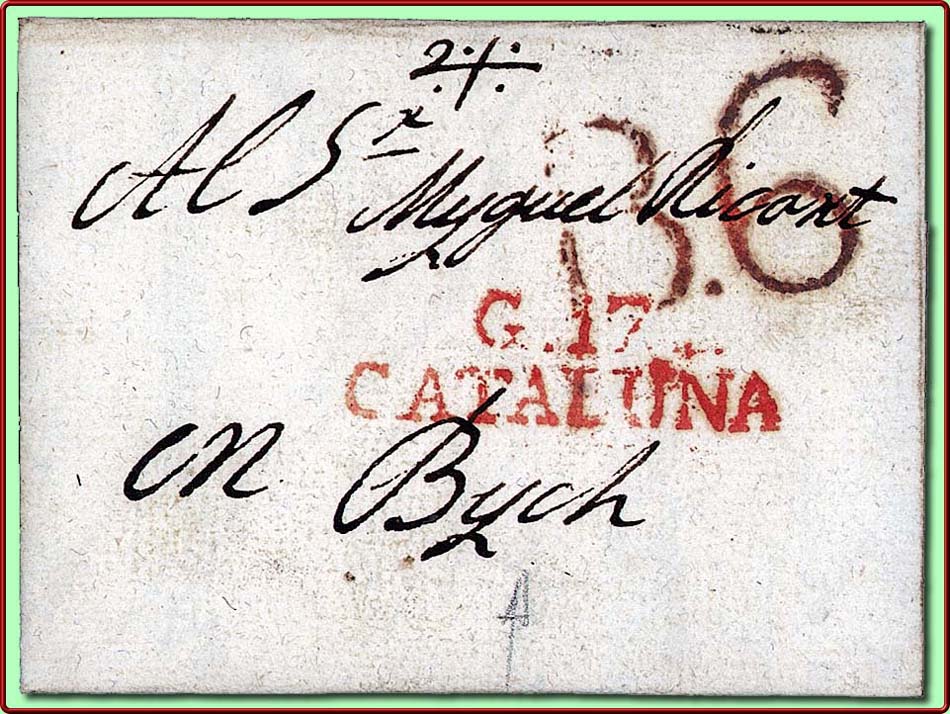 Al Sr Myguel Ricart
B.6
G.17
CATALUNA
en Bych